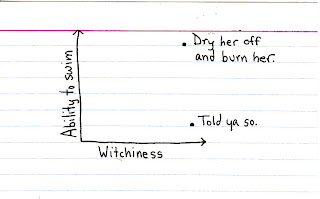 Dry her off
and burn her.
Ability to swim
Told ya so.
Witchiness